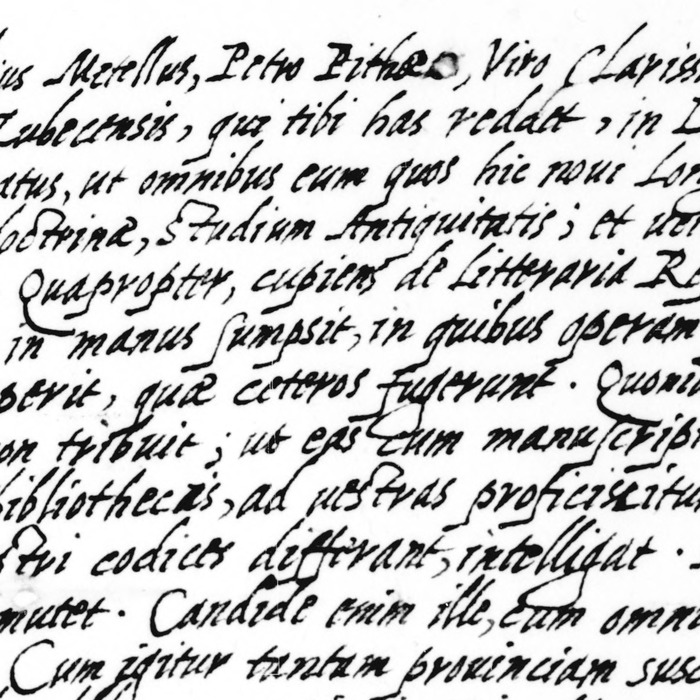 ius Metellus, Petro Pithœo, Viro Clariss
Lubecensis, qui tibi has reddit, in
atus, ut omnibus eum quos hic noui Lon
doctrinæ, Studium Antiquitatis; et uer
Quapropter, cupiens de Litteraria R
in manus sumpsit, in quibus operam
perit, quæ ceteros fugerunt. Quoni
on tribuit; ut eas cum manuscript
bibliothecas, ad uestras proficiscitur
stri codices differant, intelligat.
mutet. Candide enim ille, cum omni
Cum igitur tantam prouinciam susc